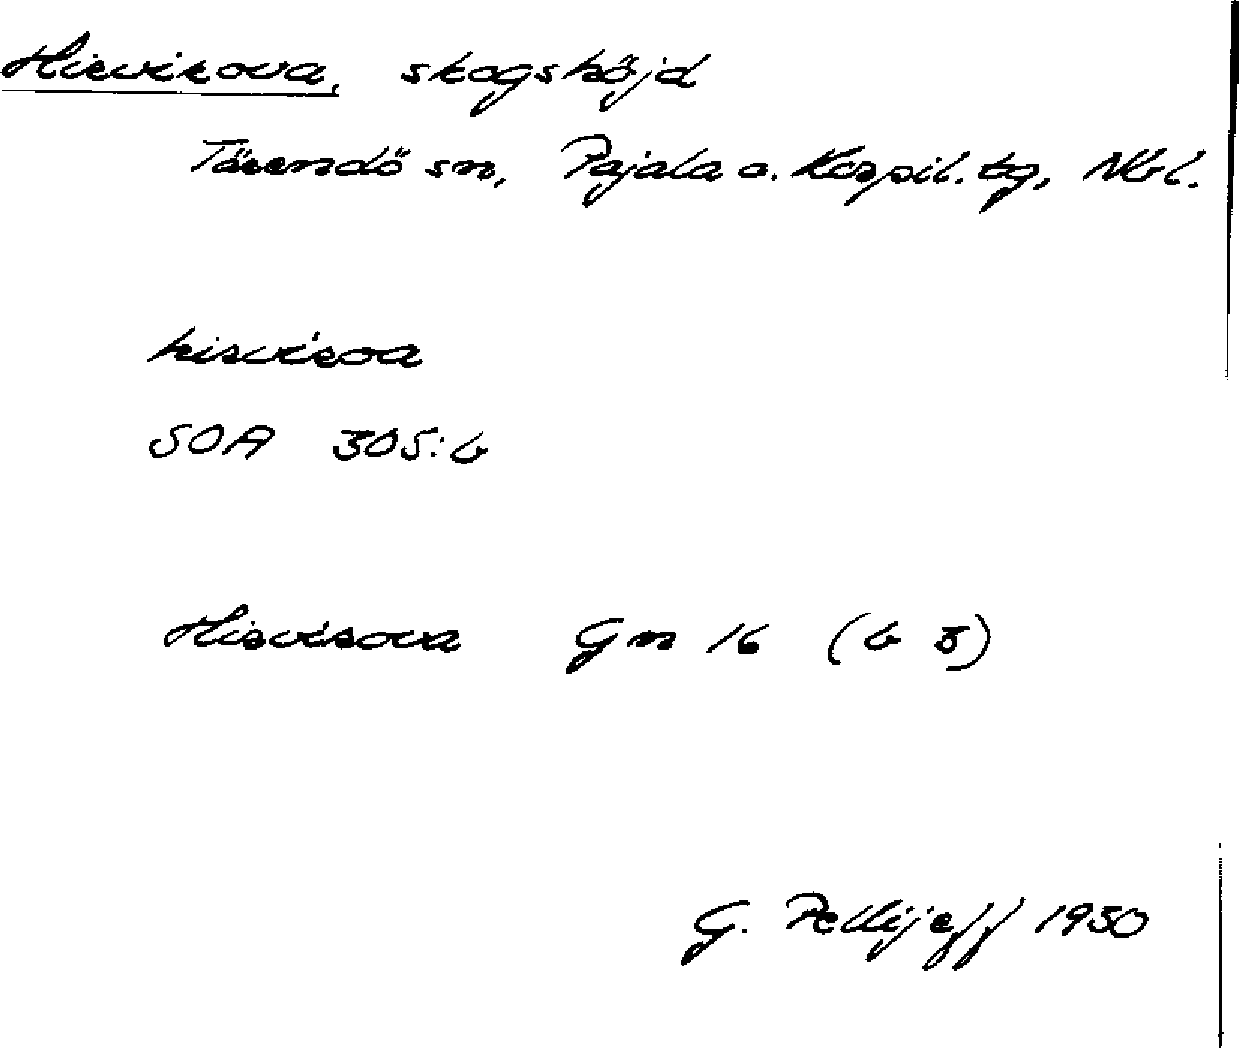 Hirvirova, skogshöjd
Tärendö sn, Pajala o. Korpil. tg, Nbl.
hirvíroa
SOA 305:6
Hirvirova Gn 16 (6 3)
G. Pellijeff 1950